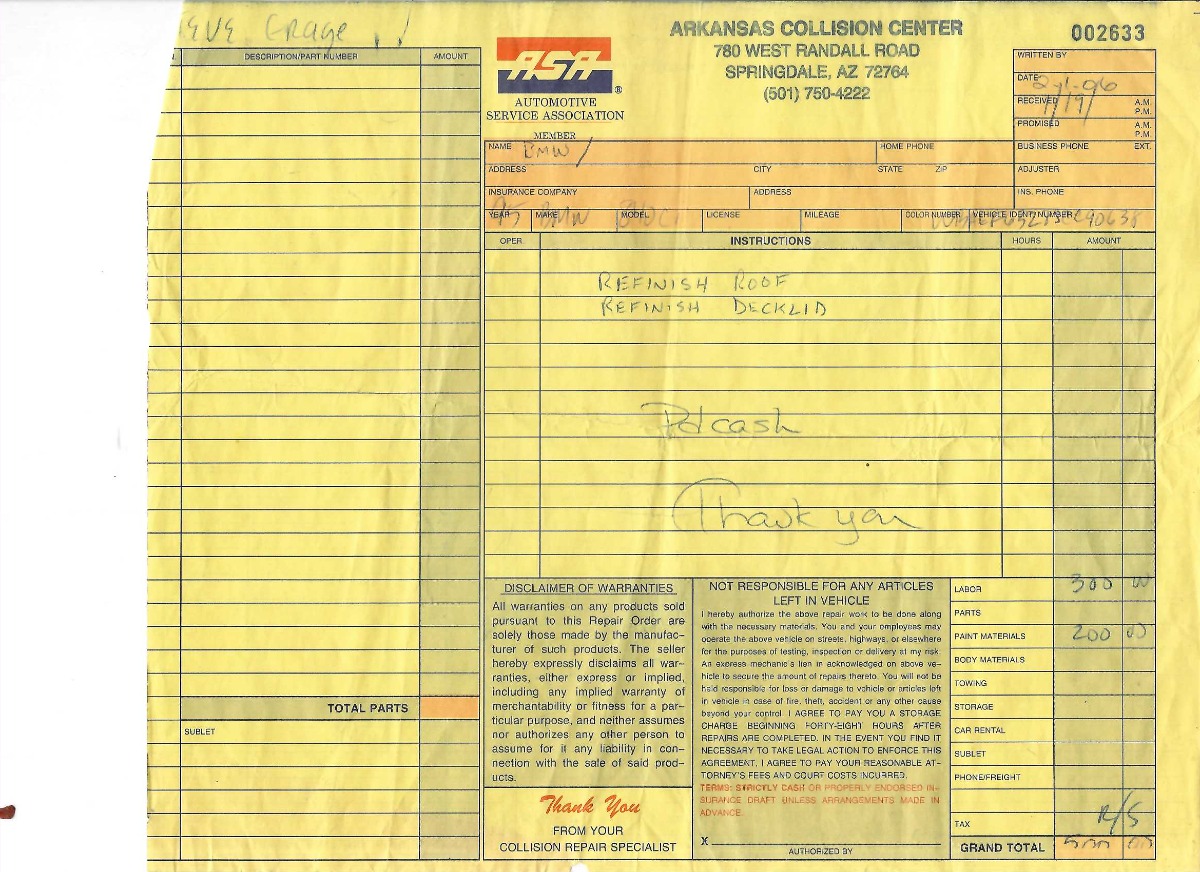 EVE Crage !
DESCRIPTION/PART NUMBER AMOUNT
TOTAL PARTS
SUBLET
ASA ®
AUTOMOTIVE
SERVICE ASSOCIATION
MEMBER
ARKANSAS COLLISION CENTER
780 WEST RANDALL ROAD
SPRINGDALE, AZ 72764
(501) 750-4222
002633
WRITTEN BY
DATE 2-1-96
RECEIVED 1/19/ A.M.
P.M.
PROMISED A.M.
P.M.
NAME BMW HOME PHONE BUSINESS PHONE EXT.
ADDRESS CITY STATE ZIP ADJUSTER
INSURANCE COMPANY ADDRESS INS. PHONE
YEAR 95 MAKE BMW MODEL LICENSE MILEAGE COLOR NUMBER VEHICLE IDENT. NUMBER
OPER. INSTRUCTIONS HOURS AMOUNT
REFINISH ROOF
REFINISH DECKLID
Pd cash
Thank you
DISCLAIMER OF WARRANTIES
All warranties on any products sold
pursuant to this Repair Order are
solely those made by the manufac-
turer of such products. The seller
hereby expressly disclaims all war-
ranties, either express or implied,
including any implied warranty of
merchantability or fitness for a par-
ticular purpose, and neither assumes
nor authorizes any other person to
assume for it any liability in con-
nection with the sale of said prod-
ucts.
Thank You
FROM YOUR
COLLISION REPAIR SPECIALIST
NOT RESPONSIBLE FOR ANY ARTICLES
LEFT IN VEHICLE
I hereby authorize the above repair work to be done along
with the necessary materials. You and your employees may
operate the above vehicle on streets, highways, or elsewhere
for the purposes of testing, inspection or delivery at my risk.
An express mechanic's lien in acknowledged on above ve-
hicle to secure the amount of repairs thereto. You will not be
held responsible for loss or damage to vehicle or articles left
in vehicle in case of fire, theft, accident or any other cause
beyond your control. I AGREE TO PAY YOU A STORAGE
CHARGE BEGINNING FORTY-EIGHT HOURS AFTER
REPAIRS ARE COMPLETED. IN THE EVENT YOU FIND IT
NECESSARY TO TAKE LEGAL ACTION TO ENFORCE THIS
AGREEMENT, I AGREE TO PAY YOUR REASONABLE AT-
TORNEY'S FEES AND COURT COSTS INCURRED.
TERMS: STRICTLY CASH OR PROPERLY ENDORSED IN-
SURANCE DRAFT UNLESS ARRANGEMENTS MADE IN
ADVANCE.
X
AUTHORIZED BY
LABOR 300 00
PARTS
PAINT MATERIALS 200 00
BODY MATERIALS
TOWING
STORAGE
CAR RENTAL
SUBLET
PHONE/FREIGHT
TAX R/S
GRAND TOTAL 500 00